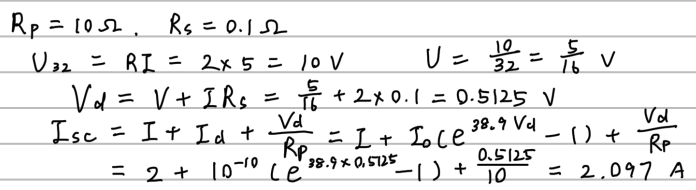 Rp = 10 Ω, Rs = 0.1 Ω
U32 = RI = 2 × 5 = 10 V U = 10/32 = 5/16 V
Vd = V + IRs = 5/16 + 2×0.1 = 0.5125 V
Isc = I + Id + Vd/Rp = I + I0(e^38.9 Vd - 1) + Vd/Rp
= 2 + 10^-10 (e^38.9×0.5125 - 1) + 0.5125/10 = 2.097 A